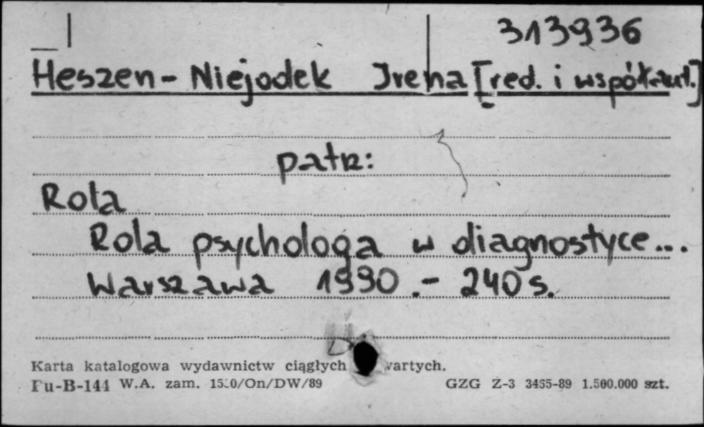 313936
Heszen-Niejodek Irena [red. i współaut.]
patrz:
Rola
Rola psychologa w diagnostyce...
Warszawa 1990.- 240 s.
Karta katalogowa wydawnictw ciągłych wartych.
Pu-B-144 W.A. zam. /On/DW/89 GZG Z-3 3455-89 1.500.000 szt.